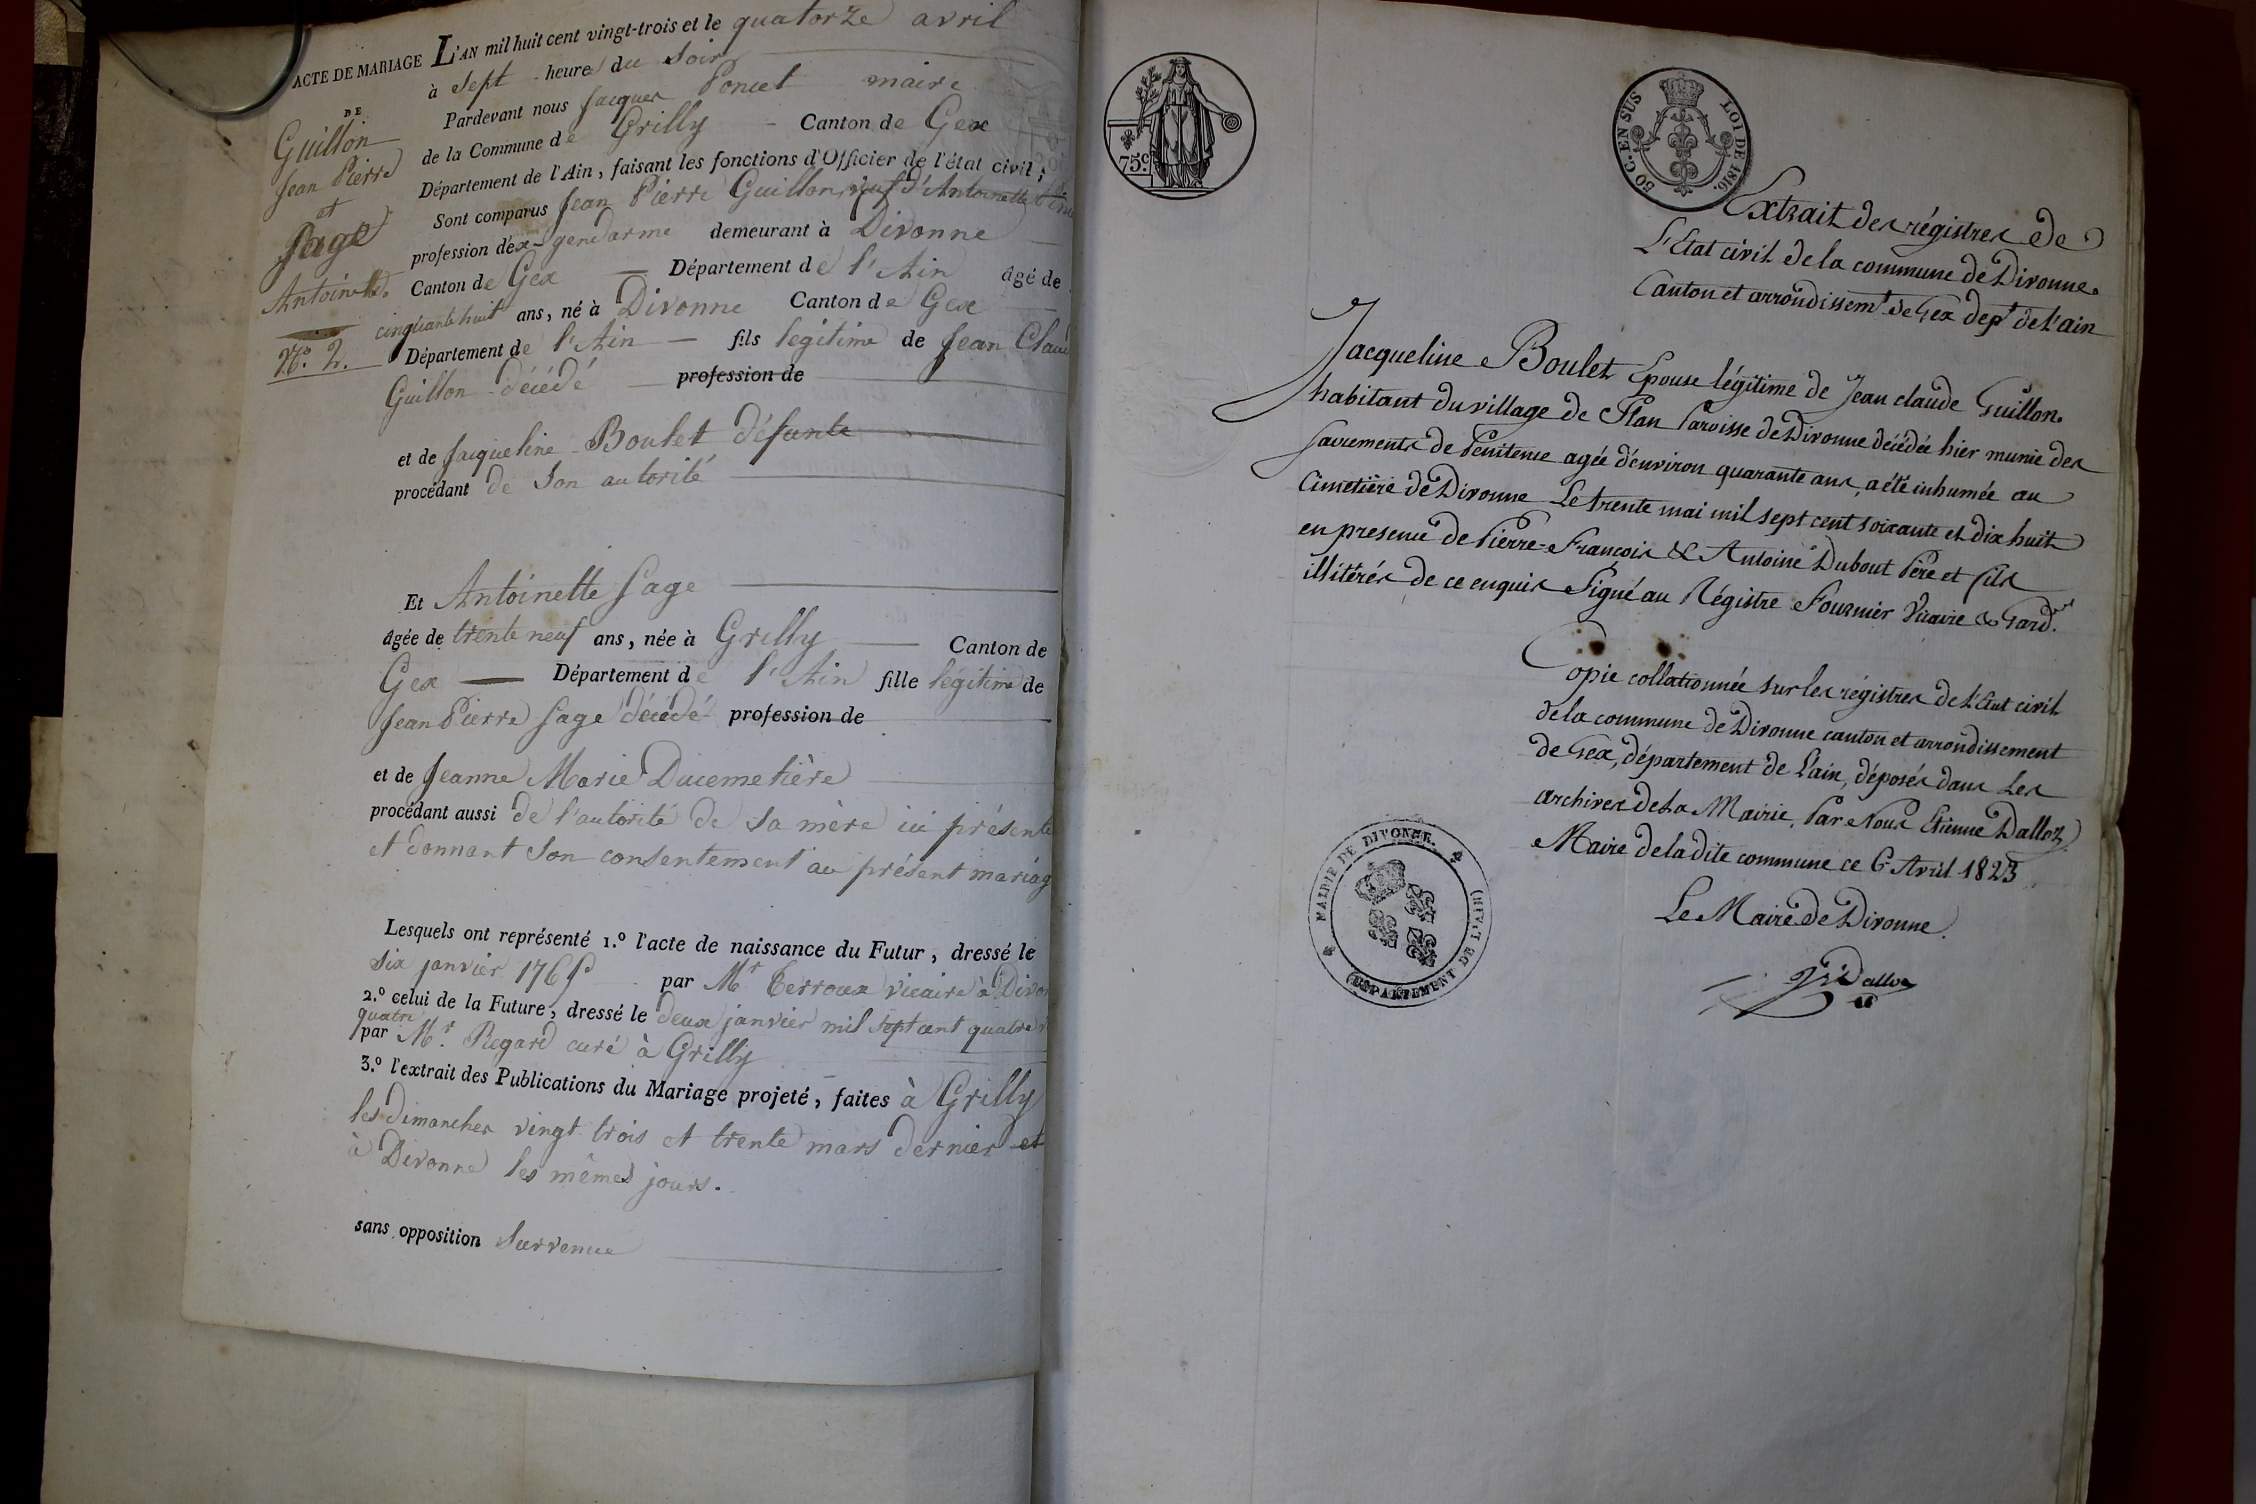 ACTE DE MARIAGE
DE
Guillon
Jean Pierre
et
Sage
Antoinette
N.° 2.
L'AN mil huit cent vingt-trois et le quatorze avril
à sept heure du soir
Pardevant nous Jacques Poncet maire
de la Commune de Grilly - Canton de Gex
Département de l'Ain, faisant les fonctions d'Officier de l'état civil;
Sont comparus Jean Pierre Guillon, veuf d'Antoinette
profession d'ex-gendarme demeurant à Divonne
Canton de Gex — Département de l'Ain âgé de
cinquante huit ans, né à Divonne Canton de Gex
Département de l'Ain — fils légitime de Jean Clau
Guillon décédé — profession de
et de Jacqueline Boulet défunte
procédant de son autorité
Et Antoinette Sage
âgée de trente neuf ans, née à Grilly — Canton de
Gex — Département de l'Ain fille légitime de
Jean Pierre Sage décédé profession de
et de Jeanne Marie Ducemetière
procédant aussi de l'autorité de sa mère ici présente
et donnant son consentement au présent mariag
Lesquels ont représenté 1.° l'acte de naissance du Futur, dressé le
six janvier 1765 par Mr Terroux vicaire à Divon
2.° celui de la Future, dressé le deux janvier mil sept cent quatre v
quatre
par Mr. Regard curé à Grilly
3.° l'extrait des Publications du Mariage projeté, faites à Grilly
les dimanches vingt trois et trente mars dernier et
à Divonne les mêmes jours.
sans opposition survenue
75 c.
50 C. EN SUS LOI DE 1816.
Extrait des régistres de
L'Etat civil de la commune de Divonne
Canton et arrondissemt. de Gex dept de l'ain
Jacqueline Boulet Epouse légitime de Jean claude Guillon
habitant du village de Plan Paroisse de Divonne décédée hier munie des
sacrements de Penitence agée d'environ quarante ans, a été inhumée au
Cimetière de Divonne Le trente mai mil sept cent soixante et dix huit
en presence de Pierre-François & Antoine Dubout Père et fils
illitérés de ce enquis Signé au Régistre Fournier Vicaire & Gard.en
Copie collationnée sur les régistres de L'Etat civil
de la commune de Divonne canton et arrondissement
de Gex, département de L'ain, déposés dans Les
archives de La Mairie, Par Nous Etienne Dalloz
Maire de la dite commune ce 6 Avril 1823
Le Maire de Divonne.
Dalloz
MAIRIE DE DIVONNE.
(DÉPARTEMENT DE L'AIN)